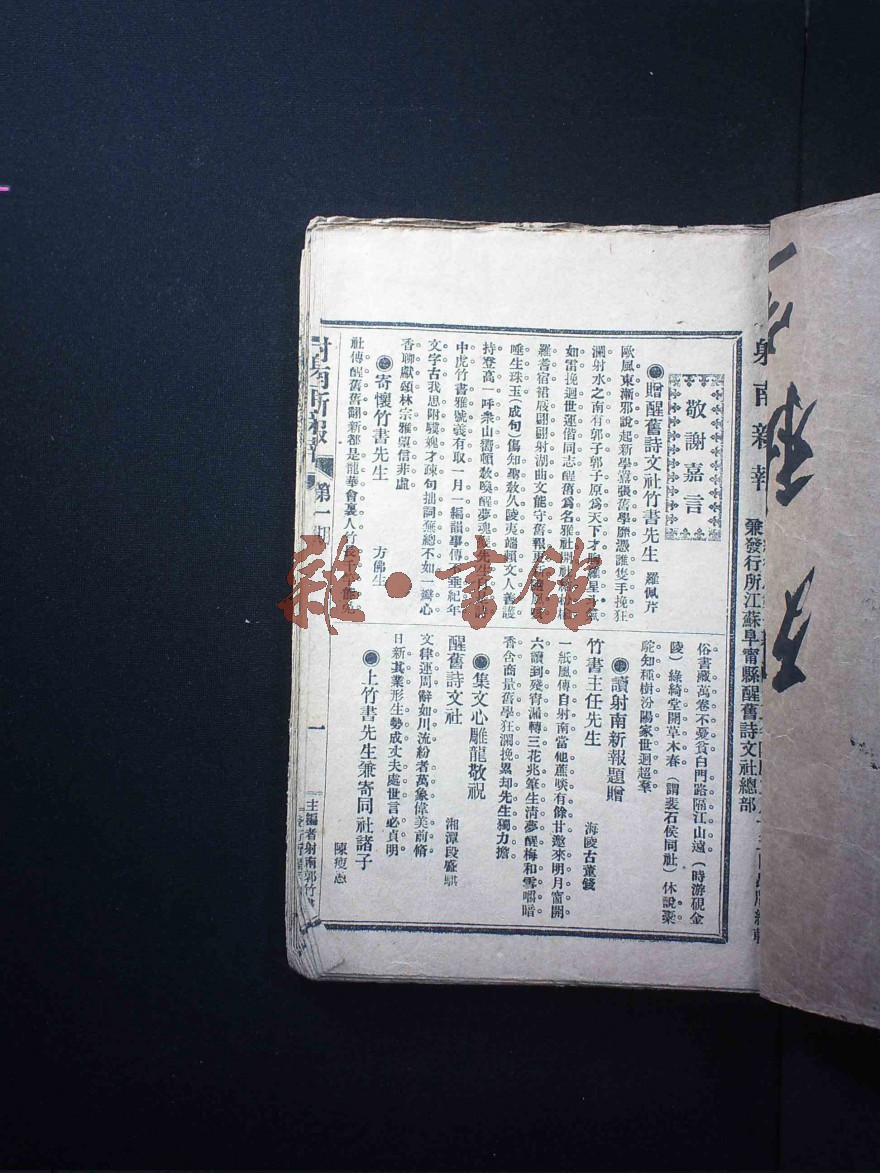 射南新報
兼發行所江蘇阜甯縣醒舊詩文社總部
敬謝嘉言
●贈醒舊詩文社竹書先生 羅佩芹
歐風東漸邪說起新學囂張舊學靡憑誰隻手挽狂
瀾射水之南有郭子郭子原爲天下才胸羅星斗氣
如雷挽迴世運偕同志醒舊爲名雅社開社
羅耆宿裙屐翩翩射湖曲文能守舊報更新
唾生珠玉(成句)傷知聖教久陵夷端賴文人善護
持登高一呼衆山響頓教喚醒夢魂
中虎竹書雅號義有取一月一編韻事傳不垂紀年
文字古我思附驥媿才疎句拙詞蕪總不如一瓣心
香聊獻頌林宗雅望信非虛
●寄懷竹書先生 方佛生
社傳醒舊舊翻新都是龍華會裏人竹
俗書藏萬卷不憂貧白門路隔江山遠(時游硯金
陵)綠綺堂開草木春(謂裴石侯同社)休說槖
駝知種樹汾陽家世迥超羣
●讀射南新報題贈
竹書主任先生 海陵古董錢
一紙風傳自射南當他蔗啖有餘甘邀來明月窗開
六讀到殘宵漏轉三花兆筆生清夢醒梅和雪嚼暗
香含商量舊學狂瀾挽畢却先生獨力擔
●集文心雕龍敬祝
醒舊詩文社 湘潭段
文律運周辭如川流紛者萬象偉美前脩
日新其業形生勢成丈夫處世言必貞明
●上竹書先生兼寄同社諸子
陳瘦愚
射南新報 第一期
一
主編者射南郭竹書
雜·書館